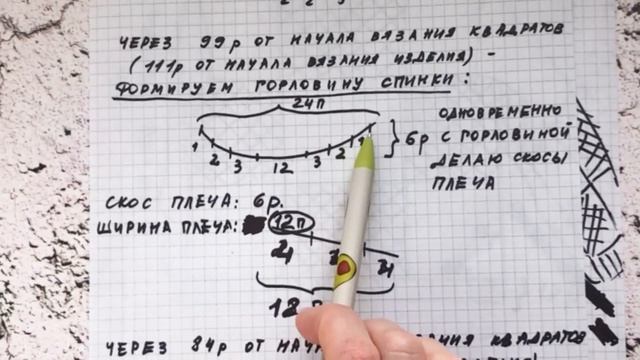 ЧЕРЕЗ 99р ОТ НАЧАЛА ВЯЗАНИЯ КВАДРАТОВ
(111р ОТ НАЧАЛА ВЯЗАНИЯ ИЗДЕЛИЯ) -
ФОРМИРУЕМ ГОРЛОВИНУ СПИНКИ:
24п
1 2 3 12 3 2 1
6р
ОДНОВРЕМЕННО
С ГОРЛОВИНОЙ
ДЕЛАЮ СКОСЫ
ПЛЕЧА
СКОС ПЛЕЧА: 6р.
ШИРИНА ПЛЕЧА: 12п
12
ЧЕРЕЗ 84р ОТ ВЯЗАНИЯ КВАДРАТОВ